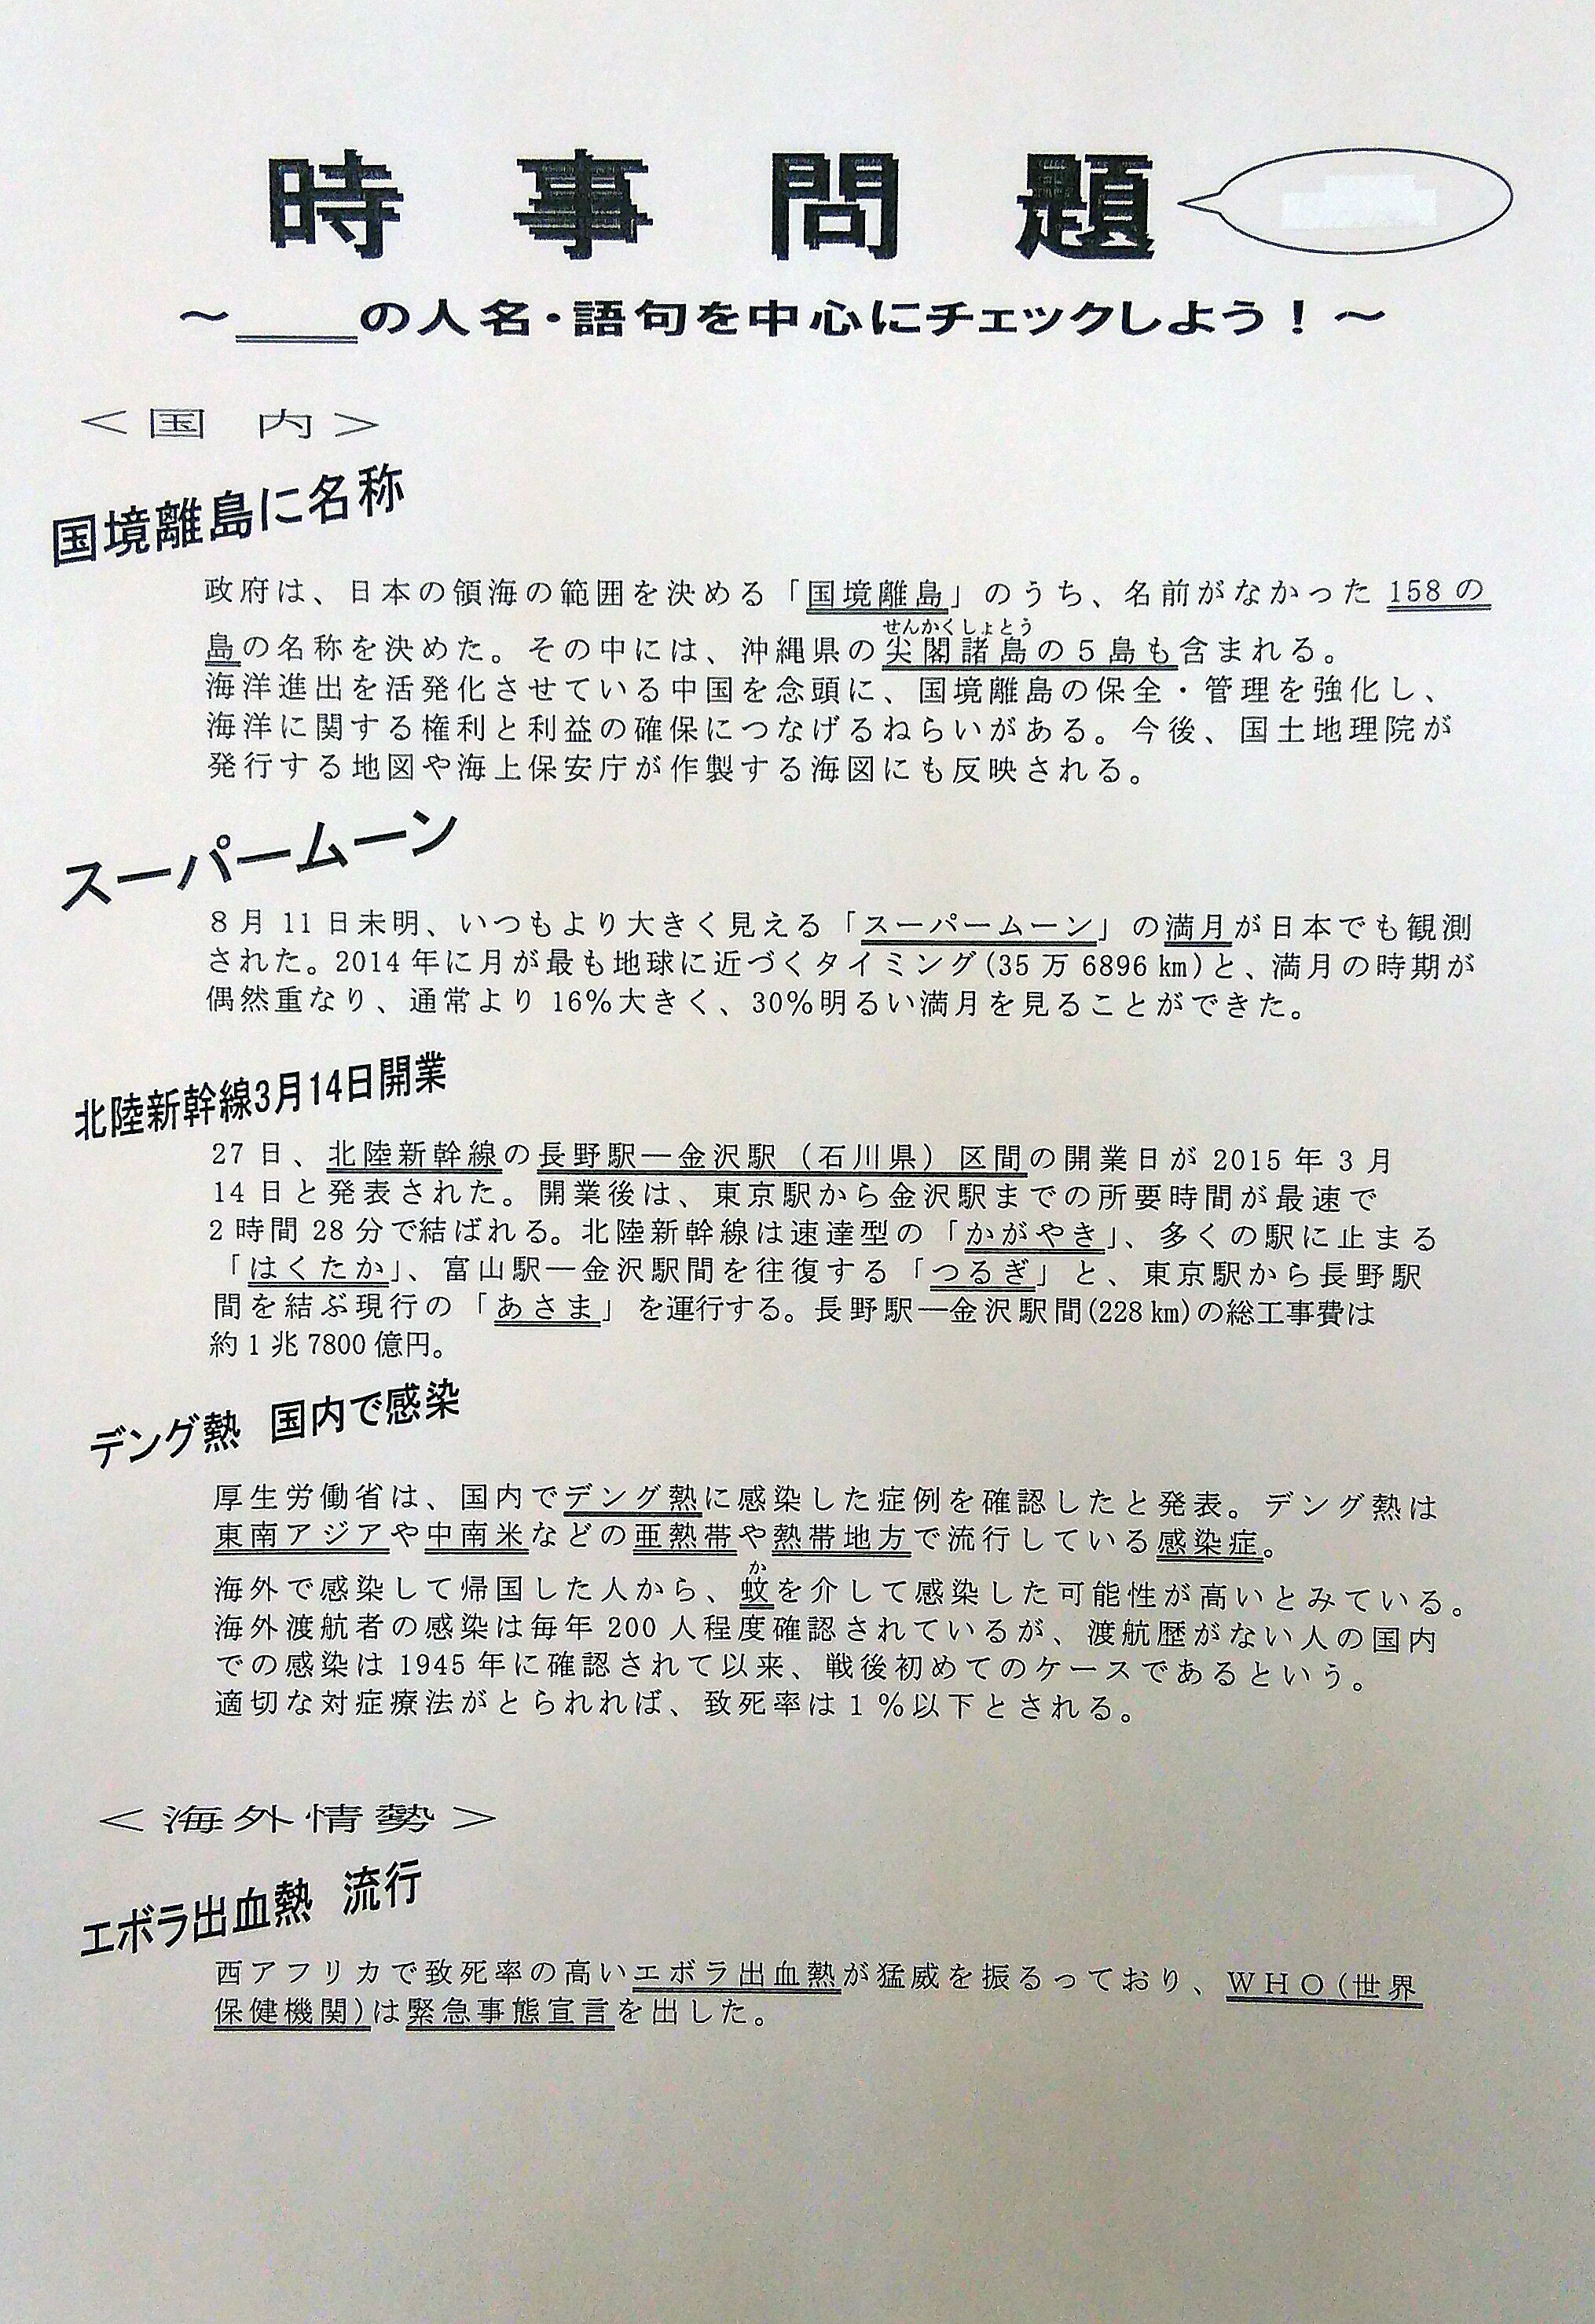 時事問題
～＿＿＿の人名・語句を中心にチェックしよう！～
＜国 内＞
国境離島に名称
政府は、日本の領海の範囲を決める「国境離島」のうち、名前がなかった158の
せんかくしょとう
島の名称を決めた。その中には、沖縄県の尖閣諸島の５島も含まれる。
海洋進出を活発化させている中国を念頭に、国境離島の保全・管理を強化し、
海洋に関する権利と利益の確保につなげるねらいがある。今後、国土地理院が
発行する地図や海上保安庁が作製する海図にも反映される。
スーパームーン
8月11日未明、いつもより大きく見える「スーパームーン」の満月が日本でも観測
された。2014年に月が最も地球に近づくタイミング(35万6896km)と、満月の時期が
偶然重なり、通常より16%大きく、30%明るい満月を見ることができた。
北陸新幹線3月14日開業
27日、北陸新幹線の長野駅―金沢駅（石川県）区間の開業日が2015年3月
14日と発表された。開業後は、東京駅から金沢駅までの所要時間が最速で
2時間28分で結ばれる。北陸新幹線は速達型の「かがやき」、多くの駅に止まる
「はくたか」、富山駅―金沢駅間を往復する「つるぎ」と、東京駅から長野駅
間を結ぶ現行の「あさま」を運行する。長野駅―金沢駅間(228km)の総工事費は
約1兆7800億円。
デング熱 国内で感染
厚生労働省は、国内でデング熱に感染した症例を確認したと発表。デング熱は
東南アジアや中南米などの亜熱帯や熱帯地方で流行している感染症。
か
海外で感染して帰国した人から、蚊を介して感染した可能性が高いとみている。
海外渡航者の感染は毎年200人程度確認されているが、渡航歴がない人の国内
での感染は1945年に確認されて以来、戦後初めてのケースであるという。
適切な対症療法がとられれば、致死率は1%以下とされる。
＜海外情勢＞
エボラ出血熱 流行
西アフリカで致死率の高いエボラ出血熱が猛威を振るっており、ＷＨＯ(世界
保健機関)は緊急事態宣言を出した。